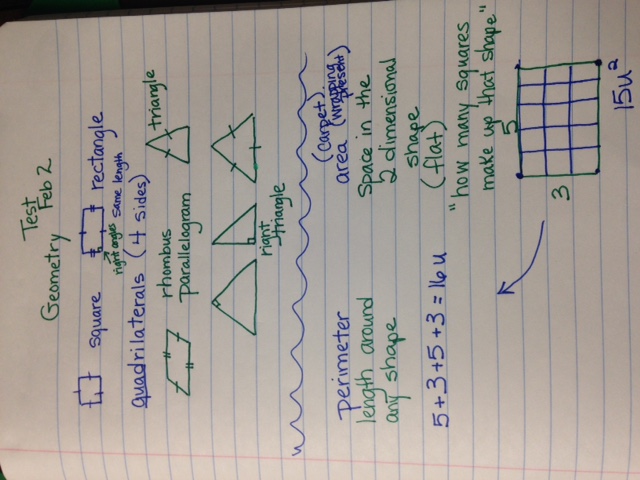 Test
Geometry Feb 2
square rectangle
right angles same length
quadrilaterals (4 sides)
triangle
rhombus
parallelogram
right
triangle
perimeter
length around
any shape
5+3+5+3=16u
(carpet)
area (wrapping
present)
space in the
2 dimensional
shape
(flat)
"how many squares
make up that shape"
5
3
15u²